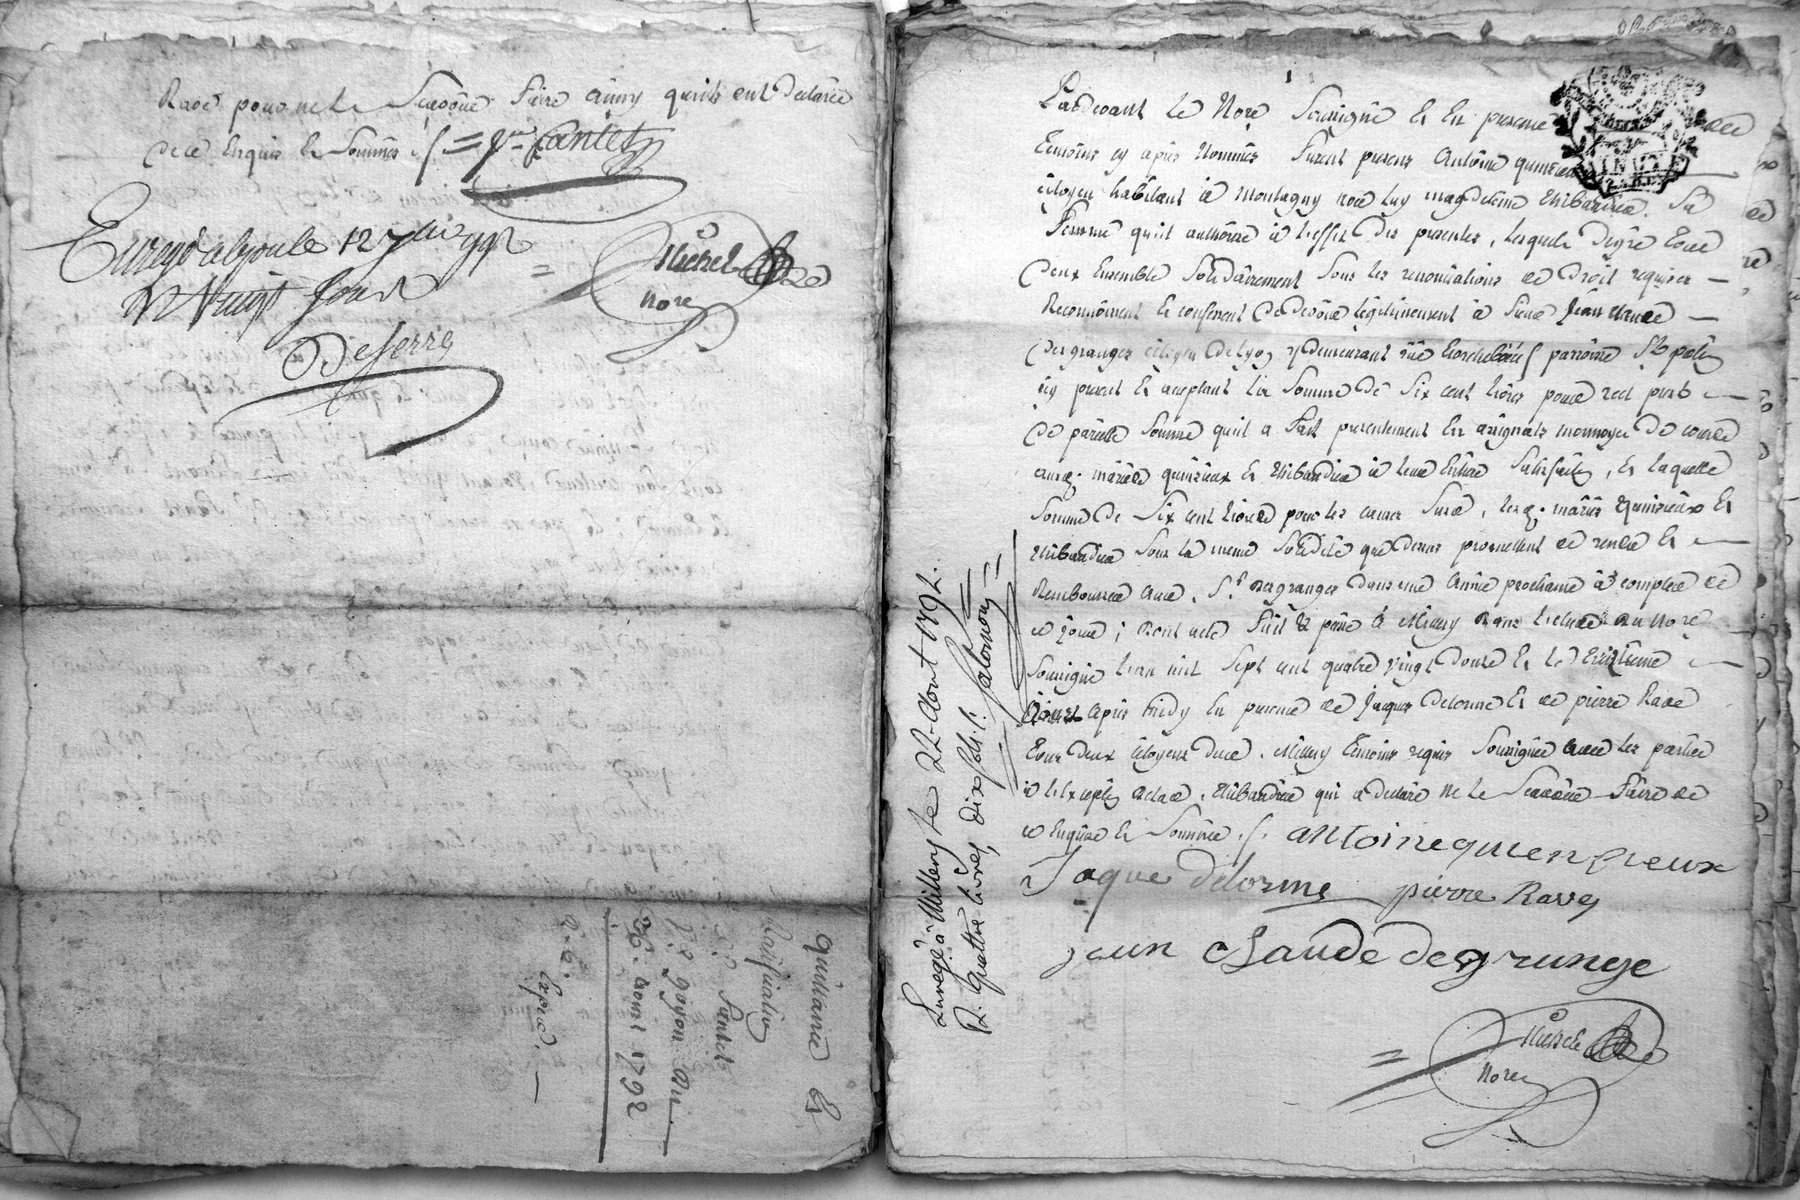 Rade pour ne le Scavoir faire ainsy quils ont déclaré
de ce Enquis & Sommés ./. = pre Cantet
Enregé alyoule 12 7bre 1792
R Vingt sous
Deserre
Michel
Nore
quittance &
Ratification
Sr Santet
Rd goyon du
26. aoust 1792
Expié.
Pardevant le Nore Soussigné & En presence des
temoins cy après Nommés furent presens Antoine quinsieux
citoyen habitant à montagny avec luy magdelaine thibaudier Sa
femme quil authorise à l'effet des presentes, lesquels de gré tous
deux Ensemble Solidairement Sous les renonciations de Droit requises —
Reconnoissent & confessent de devoir légitimement à Sieur Jean Claude —
Desgranges citoyen de lyon y demeurant rüe paroisse St pol
icy present & aceptant la Somme de Six cent livres pour réel prest —
de pareille Somme quil a fait presentement En assignats monnoye de cours
auxd. mariés quinsieux & thibaudier à leur Entière Satisfaction, & laquelle
Somme de Six cent livres pour les causes Susd., lesd. mariés quinsieux &
thibaudier Sous la meme Solidité que dessus promettent de rendre & —
Rembourser aud. Sr. Desgranges dans une année prochaine à compter de
ce jour; dont acte fait & passé à Millery dans l'etude du Nore
Soussigné l'an mil Sept cent quatre vingt douze & le —
Aoust après midy En presence de Jaques delorme & de pierre Rave
tous deux citoyens dud. Millery temoins requis Soussignés avec les parties
à l'Exception de lad. thibaudier qui a declaré ne le Scavoir faire de
ce Enquise & Sommée ./. antoine quenzieux
Jaque delorme pierre Rave
jean Claude degrange
Michel
Nore
Enregé à Millery le 22 Aout 1792.
R. quattre livres dix sols ./. Salomon